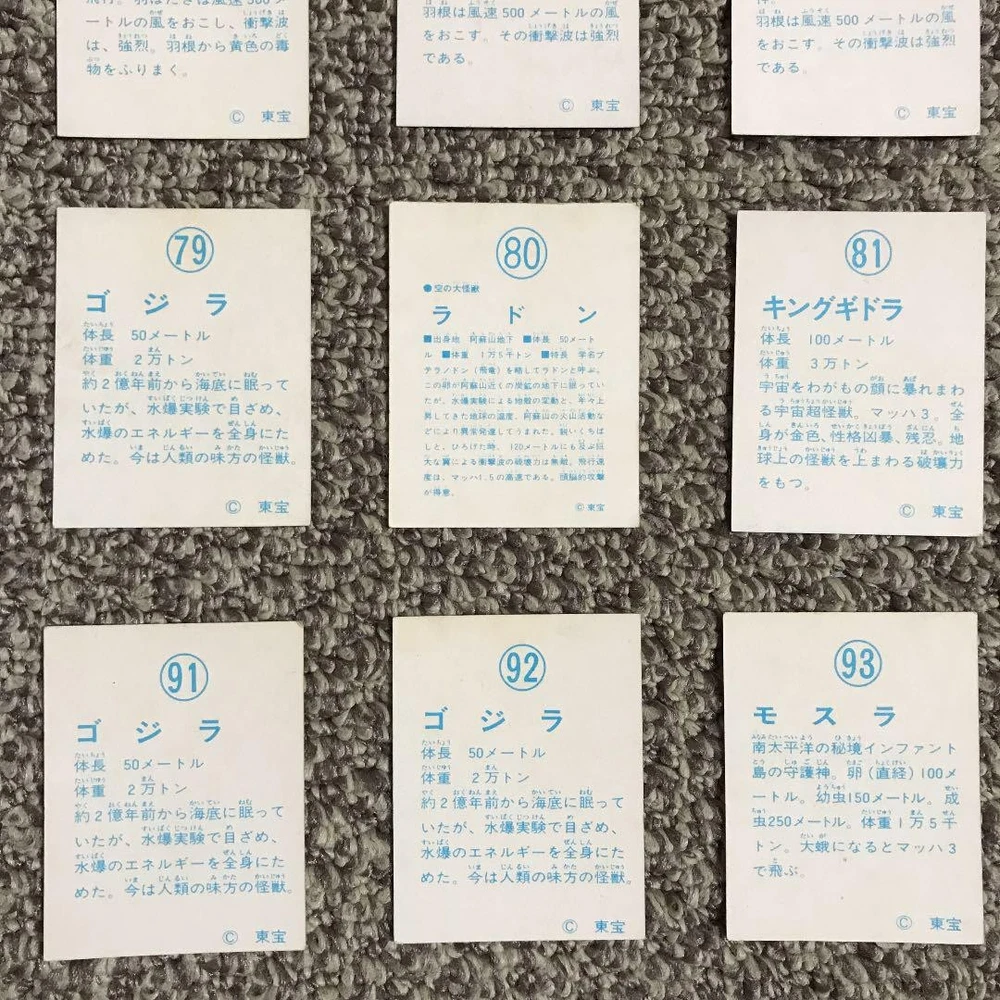 ートルの風をおこし、衝撃波
は、強烈。羽根から黄色の毒
物をふりまく。
© 東宝
羽根は風速500メートルの風
をおこす。その衝撃波は強烈
である。
© 東宝
羽根は風速500メートルの風
をおこす。その衝撃波は強烈
である。
© 東宝
79
ゴジラ
体長 50メートル
体重 2万トン
約2億年前から海底に眠って
いたが、水爆実験で目ざめ、
水爆のエネルギーを全身にた
めた。今は人類の味方の怪獣。
© 東宝
80
●空の大怪獣
ラドン
■出身地 阿蘇山地下 ■体長 50メート
ル ■体重 1万5千トン ■特長 学名プ
テラノドン(飛竜)を略してラドンと呼ぶ。
この卵が阿蘇山近くの炭鉱の地下に眠ってい
たが、水爆実験による地殻の変動と、年々上
昇してきた地球の温度、阿蘇山の火山活動な
どにより異常発達してうまれた。鋭いくちば
しと、ひろげた時、120メートルにも及ぶ巨
大な翼による衝撃波の破壊力は無敵。飛行速
度は、マッハ1.5の高速である。頭脳的攻撃
が得意。
© 東宝
81
キングギドラ
体長 100メートル
体重 3万トン
宇宙をわがもの顔に暴れまわ
る宇宙超怪獣。マッハ3。全
身が金色、性格凶暴、残忍。地
球上の怪獣を上まわる破壊力
をもつ。
© 東宝
91
ゴジラ
体長 50メートル
体重 2万トン
約2億年前から海底に眠って
いたが、水爆実験で目ざめ、
水爆のエネルギーを全身にた
めた。今は人類の味方の怪獣。
© 東宝
92
ゴジラ
体長 50メートル
体重 2万トン
約2億年前から海底に眠って
いたが、水爆実験で目ざめ、
水爆のエネルギーを全身にた
めた。今は人類の味方の怪獣。
© 東宝
93
モスラ
南太平洋の秘境インファント
島の守護神。卵(直経)100メ
ートル。幼虫150メートル。成
虫250メートル。体重1万5千
トン。大蛾になるとマッハ3
で飛ぶ。
© 東宝